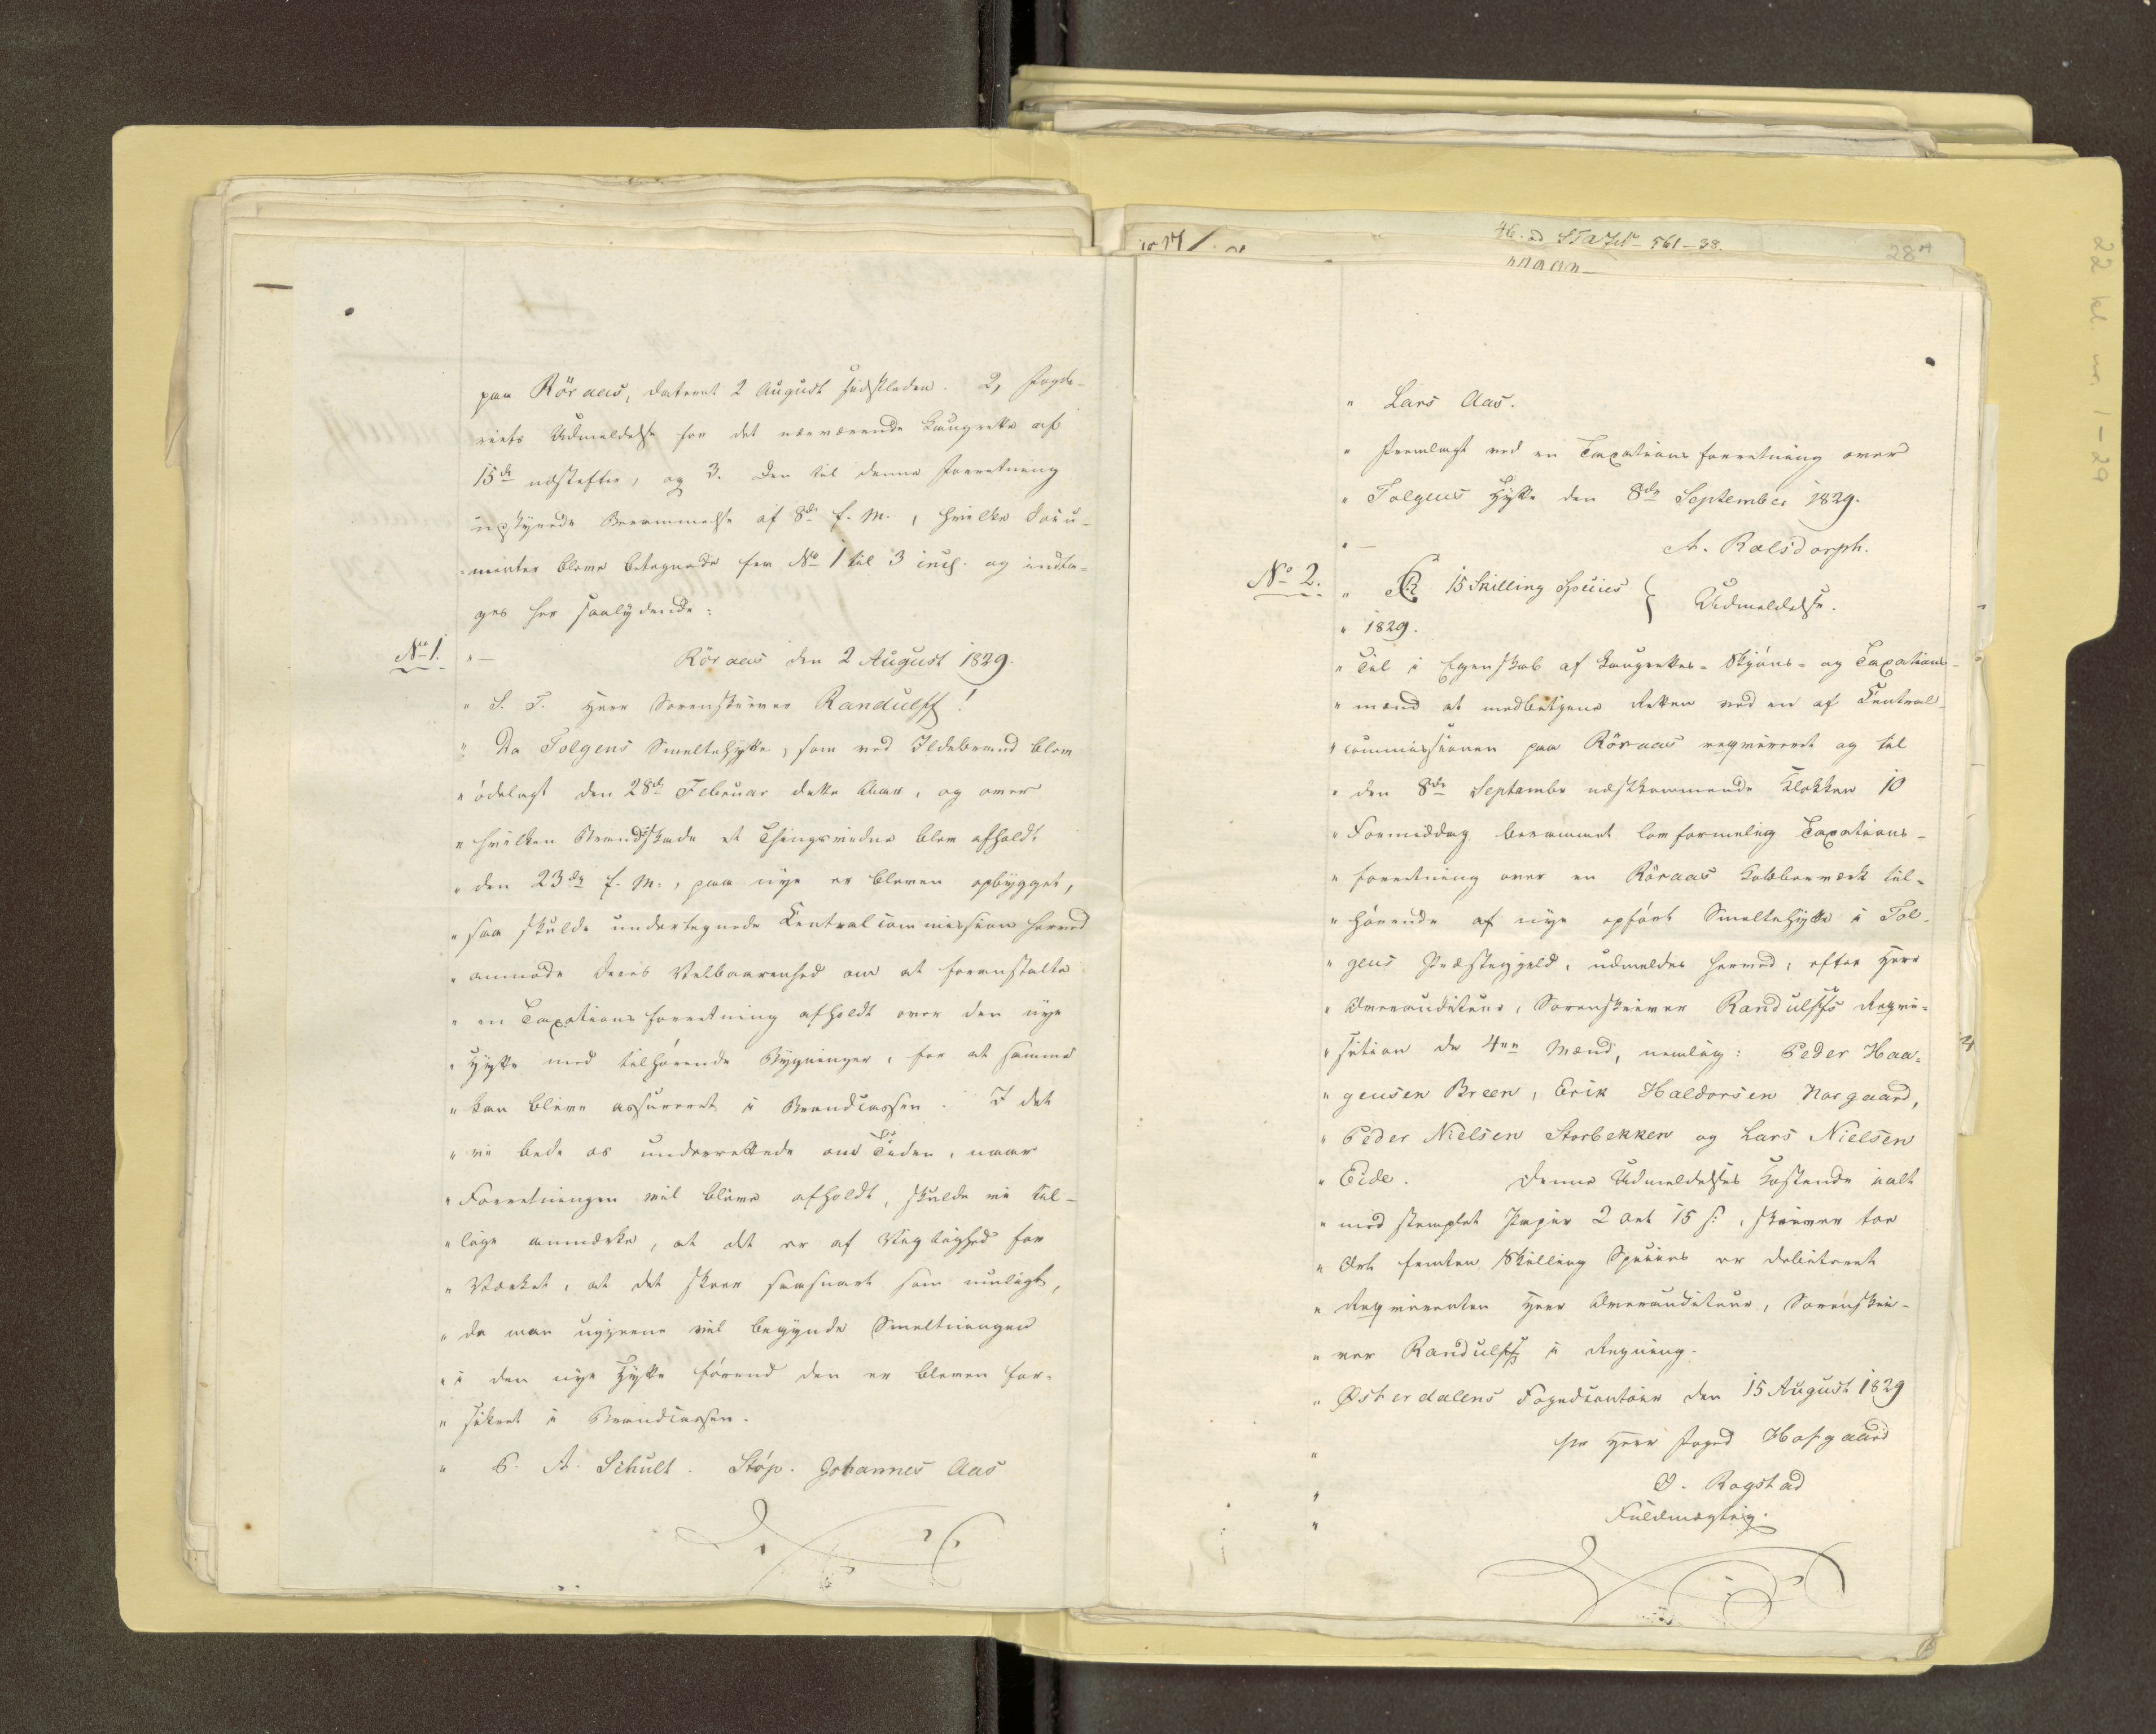 paa Röraas, dateret 2 August sidstleden. 2, Fogde-
riets Udmeldelse for det nærværende Laugrette af
15de næstefter, og 3. Den til denne Forretning
udstÿrede Berammelse af 8de f. M., hvilke Docu-
menter bleve betegnede for No 1 til 3 incl. og indta-
ges her saalydende:
No 1. "— Röraas den 2 August 1829.
" S. T. Herr Sorenskriver Randulff!
" Da Tolgens Smeltehÿtte, som ved Ildebrand blev
" ödelagt den 28de Februar dette Aar, og over
" hvilken Brandskade et Thingsvidne blev afholdt
" den 23de f. M., paa nÿe er bleven opbÿgget,
" saa skulde undertegnede Centralcommission herved
" anmode Deres Velbaarenhed om at foranstalte
" en Taxationsforretning afholdt over den nÿe
" Hÿtte med tilhörende Bÿgninger, for at samme
" kan blive assureret i Brandcassen. I det
" vi bede os underrettede om Tiden, naar
" Forretningen vil blive afholdt, skulde vi til-
" lige anmærke, at det er af Vigtighed for
" Værket, at det skeer saasnart som muligt,
" da man ugjerne vil begÿnde Smeltningen
" i den nÿe Hÿtte förend den er bleven for-
" sikret i Brandcassen.
" P. A. Schult. Stöp. Johannes Aas
46. ad STAJ No 561-38.
28 A
22 kl. nr. 1-29
" Lars Aas.
" Fremlagt ved en Taxationsforretning over
" Tolgens Hÿtte den 8de September 1829.
"— A. Rolsdorph.
No 2. " 15 Skilling Species } Udmeldelse.
" 1829.
" Til i Egenskab af Laugrettes- Skjöns- og Taxations-
" mænd at medbetjene Retten ved en af Central-
" commissionen paa Röraas reqvireret og til
" den 8de Septembr næstkommende Klokken 10
" Formiddag berammet lovformelig Taxations-
" forretning over en Röraas Kobberværk til-
" hörende af nÿe opfört Smeltehÿtte i Tol-
" gens Præstegjeld, udmeldes herved, efter Herr
" Overauditeur, Sorenskriver Randulffs Reqvi-
" sition de 4re Mænd, nemlig: Peder Haa-
" gensen Breen, Erik Haldorsen Norgaard,
" Peder Nielsen Storbekken og Lars Nielsen
" Eide. Denne Udmeldelses Kostende ialt
" med stemplet Papir 2 Ort 15 s:, skriver toe
" Ort femten Skilling Species er debiteret
" Reqvirenten Herr Overauditeur, Sorenskri-
" ver Randulff i Regning.
" Østerdalens Fogedcontoir den 15 August 1829
" for Herr Foged Hofgaard
" O. Rogstad
" Fuldmægtig.